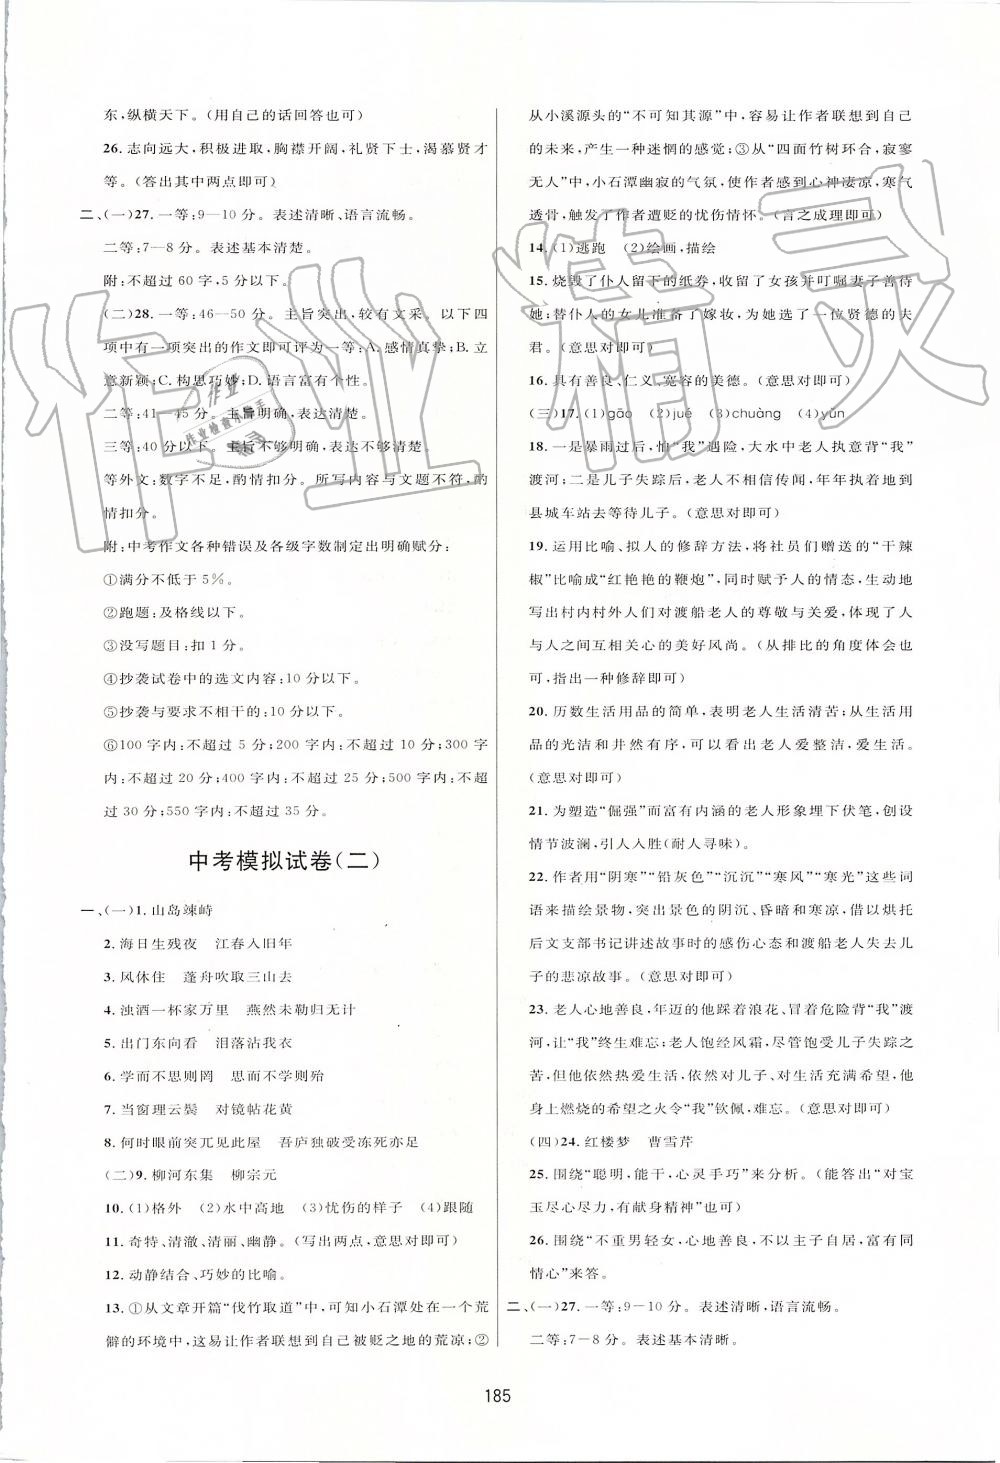 东,纵横天下。(用自己的话回答也可)
26. 志向远大,积极进取,胸襟开阔,礼贤下士,渴慕贤才
等。(答出其中两点即可)
二、(一)27. 一等:9—10 分。表述清晰、语言流畅。
二等:7—8 分。表述基本清楚。
附:不超过 60 字,5 分以下。
(二)28. 一等:46—50 分。主旨突出,较有文采。以下四
项中有一项突出的作文即可评为一等:A. 感情真挚;B. 立
意新颖;C. 构思巧妙;D. 语言富有个性。
二等:41—45 分。主旨明确,表达清楚。
三等:40 分以下。主旨不够明确,表达不够清楚。
等外文:数字不足,酌情扣分。所写内容与文题不符,酌
情扣分。
附:中考作文各种错误及各级字数制定出明确赋分:
①满分不低于 5%。
②跑题:及格线以下。
③没写题目:扣 1 分。
④抄袭试卷中的选文内容:10 分以下。
⑤抄袭与要求不相干的:10 分以下。
⑥100 字内:不超过 5 分;200 字内:不超过 10 分;300 字
内:不超过 20 分;400 字内:不超过 25 分;500 字内:不超
过 30 分;550 字内:不超过 35 分。
中考模拟试卷(二)
一、(一)1. 山岛竦峙
2. 海日生残夜 江春入旧年
3. 风休住 蓬舟吹取三山去
4. 浊酒一杯家万里 燕然未勒归无计
5. 出门东向看 泪落沾我衣
6. 学而不思则罔 思而不学则殆
7. 当窗理云鬓 对镜帖花黄
8. 何时眼前突兀见此屋 吾庐独破受冻死亦足
(二)9. 柳河东集 柳宗元
10. (1)格外 (2)水中高地 (3)忧伤的样子 (4)跟随
11. 奇特、清澈、清丽、幽静。(写出两点,意思对即可)
12. 动静结合、巧妙的比喻。
13. ①从文章开篇“伐竹取道”中,可知小石潭处在一个荒
僻的环境中,这易让作者联想到自己被贬之地的荒凉;②
从小溪源头的“不可知其源”中,容易让作者联想到自己
的未来,产生一种迷惘的感觉;③从“四面竹树环合,寂寥
无人”中,小石潭幽寂的气氛,使作者感到心神凄凉,寒气
透骨,触发了作者遭贬的忧伤情怀。(言之成理即可)
14. (1)逃跑 (2)绘画,描绘
15. 烧毁了仆人留下的纸券,收留了女孩并叮嘱妻子善待
她;替仆人的女儿准备了嫁妆,为她选了一位贤德的夫
君。(意思对即可)
16. 具有善良、仁义、宽容的美德。(意思对即可)
(三)17. (1)gāo (2)jué (3)chuàng (4)yǔn
18. 一是暴雨过后,怕“我”遇险,大水中老人执意背“我”
渡河;二是儿子失踪后,老人不相信传闻,年年执着地到
县城车站去等待儿子。(意思对即可)
19. 运用比喻、拟人的修辞方法,将社员们赠送的“干辣
椒”比喻成“红艳艳的鞭炮”,同时赋予人的情态,生动地
写出村内村外人们对渡船老人的尊敬与关爱,体现了人
与人之间互相关心的美好风尚。(从排比的角度体会也
可,指出一种修辞即可)
20. 历数生活用品的简单,表明老人生活清苦;从生活用
品的光洁和井然有序,可以看出老人爱整洁,爱生活。
(意思对即可)
21. 为塑造“倔强”而富有内涵的老人形象埋下伏笔,创设
情节波澜,引人入胜(耐人寻味)。
22. 作者用“阴寒”“铅灰色”“沉沉”“寒风”“寒光”这些词
语来描绘景物,突出景色的阴沉、昏暗和寒凉,以便烘托
后文支部书记讲述故事时的感伤心态和渡船老人失去儿
子的悲凉故事。(意思对即可)
23. 老人心地善良,年迈的他踩着浪花、冒着危险背“我”渡
河,让“我”终生难忘;老人饱经风霜,尽管饱受儿子失踪之
苦,但他依然热爱生活,依然对生活充满希望,希望,他
身上燃烧的希望之火令“我”钦佩,难忘。(意思对即可)
(四)24. 红楼梦 曹雪芹
25. 围绕“聪明,能干,心灵手巧”来分析。(能答出“对宝
玉尽心尽力,有献身精神”也可)
26. 围绕“不重男轻女,心地善良,不以主子自居,富有同
情心”来答。
二、(一)27. 一等:9—10 分。表述清晰,语言流畅。
二等:7—8 分。表述基本清晰。
185
作业精灵